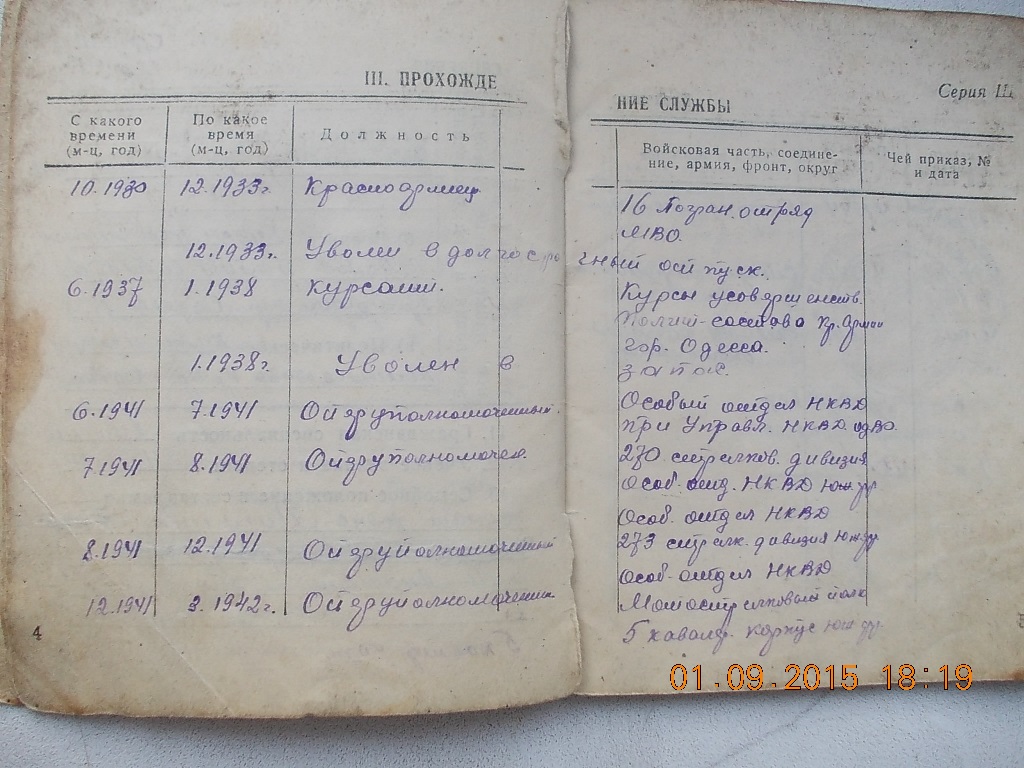 III. ПРОХОЖДЕ
НИЕ СЛУЖБЫ
Серия
С какого времени (м-ц, год)
По какое время (м-ц, год)
Должность
Войсковая часть, соедине-
ние, армия, фронт, округ
Чей приказ, №
и дата
10.1930 12.1933г. Красноармеец
16 Погран. отряд
МВО.
12.1933г. Уволен в долгосрочный отпуск.
6.1937 1.1938 курсант.
Курсы усовершенств.
Полит-состава Кр. Армии
гор. Одесса.
1.1938г. Уволен в запас.
6.1941 7.1941 Оперуполномоченный.
Особый отдел НКВД
при Управл. НКВД ОдВО.
7.1941 8.1941 Оперуполномочен.
270 стрелков. дивизия
Особ. отд. НКВД Юж. фр
Особ. отдел НКВД
8.1941 12.1941 Оперуполномоченный
273 стрелк. дивизия Юж. фр
Особ. отдел НКВД
12.1941 3.1942г. Оперуполномоченный
Мотострелковый полк
5 кавалер. корпус Юж. фр.
4
01.09.2015 18:19